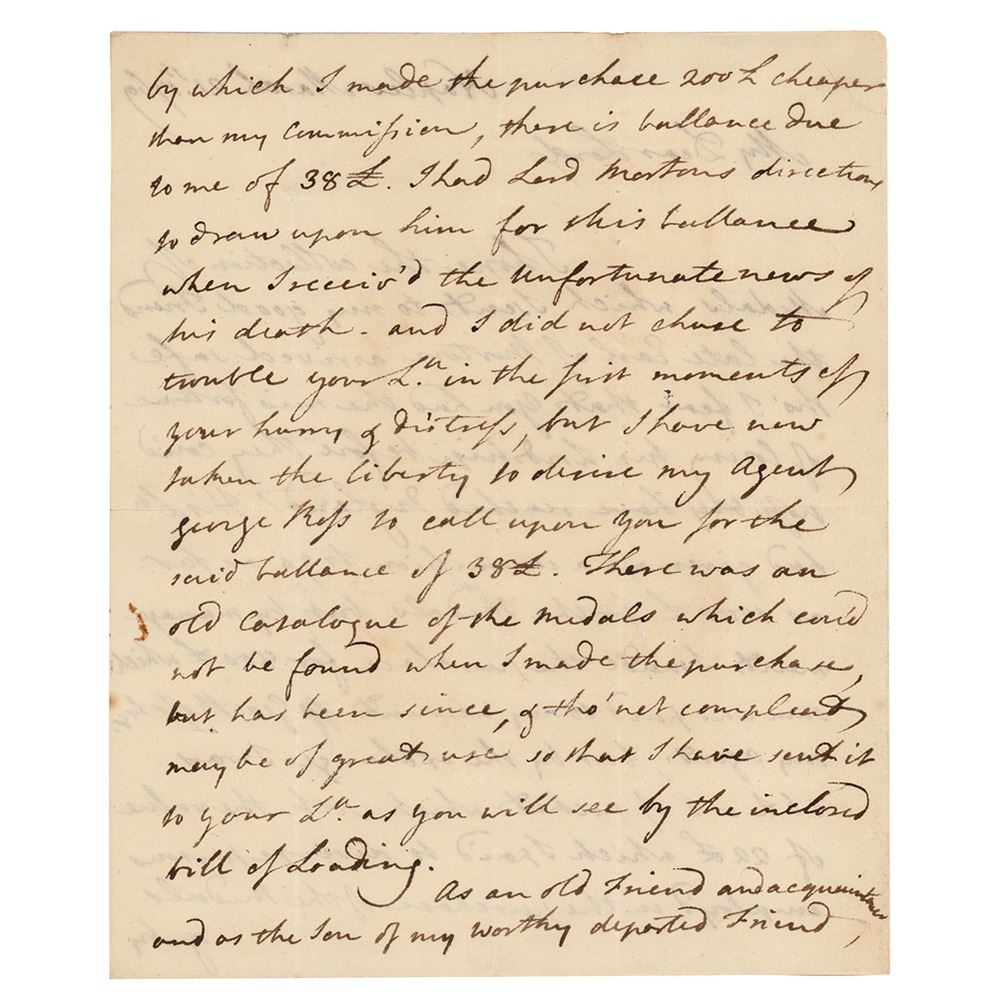 by which I made the purchase 200L cheaper
than my Commission, there is ballance due
to me of 38£. I had Lord Mortons directions
to draw upon him for this ballance
when I receiv'd the unfortunate news of
his death - and I did not chuse to
trouble your Lp. in the first moments of
your hurry & distress, but I have now
taken the liberty to desire my Agent
george Ross to call upon you for the
said ballance of 38£. There was an
old Catalogue of the Medals which cou'd
not be found when I made the purchase,
but has been since, & tho' not compleat,
may be of great use so that I have sent it
to your Lp. as you will see by the inclosed
bill of Loading.
As an old Friend and acquaintance
and as the Son of my worthy departed Friend,